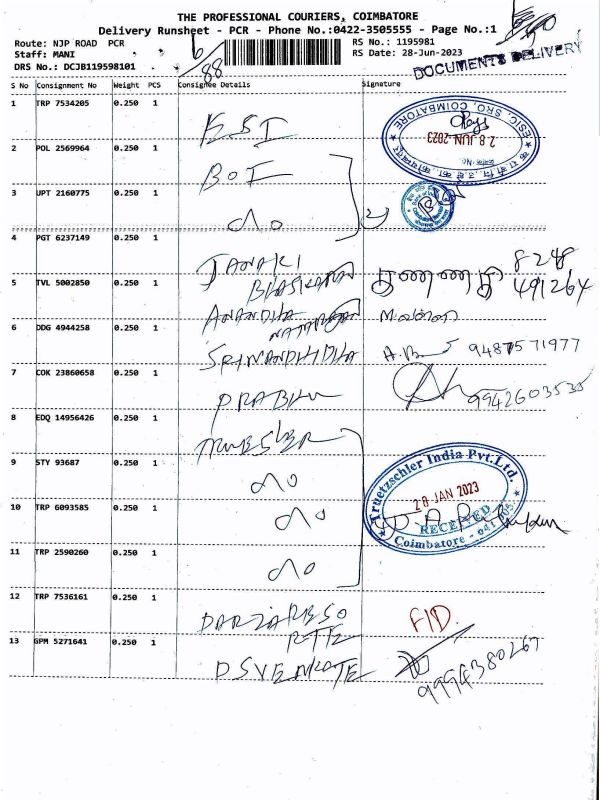 THE PROFESSIONAL COURIERS, COIMBATORE
Delivery Runsheet - PCR - Phone No.:0422-3505555 - Page No.:1
Route: NJP ROAD PCR
RS No.: 1195981
Staff: MANI
RS Date: 28-Jun-2023
DRS No.: DCJB119598101
88
DOCUMENTS DELIVERY
S No Consignment No Weight PCS Consignee Details Signature
1 TRP 7534205 0.250 1
ESI
ESIC, SRO, COIMBATORE
28 JUN 2023
2 POL 2569964 0.250 1
BOI
3 UPT 2160775 0.250 1
4 PGT 6237149 0.250 1
JANAKI
BHASKARAN
8248
491264
5 TVL 5002850 0.250 1
ANANDHA
NATARAJAN
6 DDG 4944258 0.250 1
SRINANDHIDHA
9487571977
7 COK 23860658 0.250 1
PRABHU
9942603535
8 EDQ 14956426 0.250 1
9 STY 93687 0.250 1
Truetzschler India Pvt.Ltd.
28 JAN 2023
RECEIVED
Coimbatore - 641005
10 TRP 6093585 0.250 1
11 TRP 2590260 0.250 1
12 TRP 7536161 0.250 1
FID.
13 GPM 5271641 0.250 1
9994380267